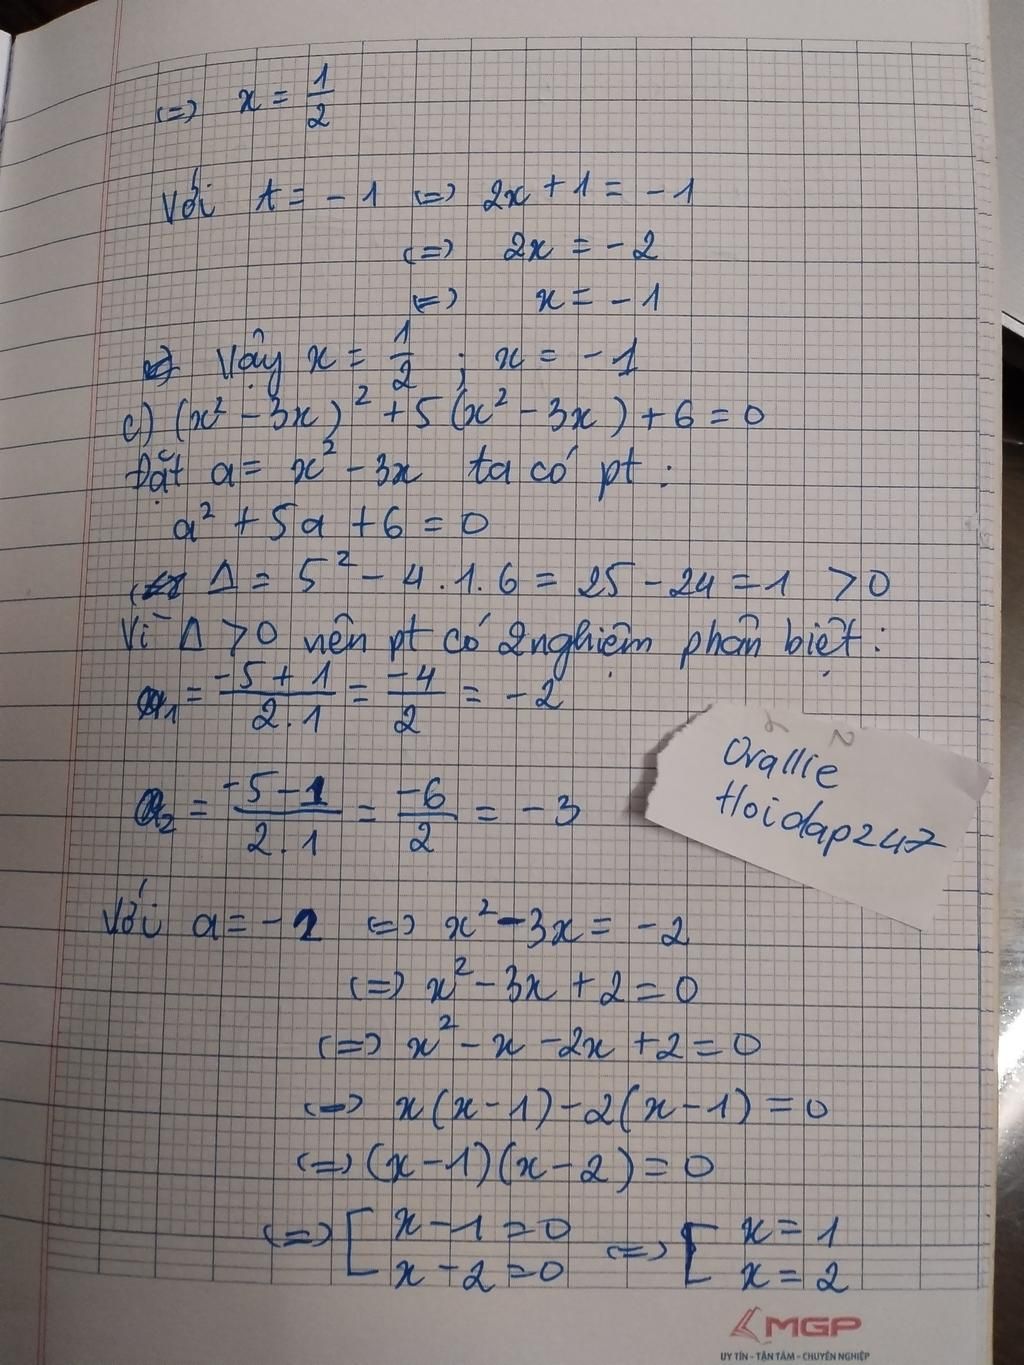 <=> x = 1/2
Với t = -1 <=> 2x + 1 = -1
<=> 2x = -2
<=> x = -1
Vậy x = 1/2 ; x = -1
c) (x² - 3x)² + 5(x² - 3x) + 6 = 0
Đặt a = x² - 3x ta có pt :
a² + 5a + 6 = 0
Δ = 5² - 4.1.6 = 25 - 24 = 1 > 0
Vì Δ > 0 nên pt có 2 nghiệm phân biệt :
a₁ = (-5 + 1)/(2.1) = -4/2 = -2
a₂ = (-5 - 1)/(2.1) = -6/2 = -3
Orallie
Hoidap247
Với a = -2 <=> x² - 3x = -2
<=> x² - 3x + 2 = 0
<=> x² - x - 2x + 2 = 0
<=> x(x - 1) - 2(x - 1) = 0
<=> (x - 1)(x - 2) = 0
<=> [ x - 1 = 0 <=> [ x = 1
x - 2 = 0 x = 2
MGP
UY TÍN - TẬN TÂM - CHUYÊN NGHIỆP